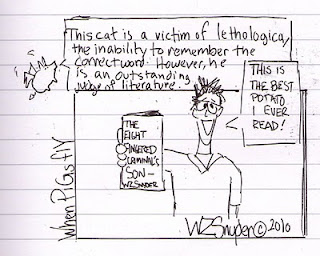 This cat is a victim of lethologica,
the inability to remember the
correct word. However, he
is an outstanding
judge of literature.
THIS IS
THE BEST
POTATO
I EVER
READ!
THE
EIGHT
FINGERED
CRIMINAL'S
SON—
WZSNYDER
When PIGs flY
WZSnyder©2010